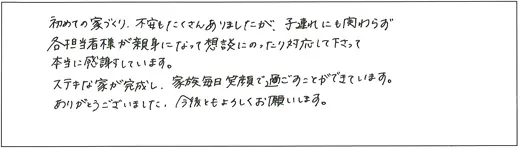 初めての家づくり、不安もたくさんありましたが、子連れにも関わらず
各担当者様が親身になって想談にのったり対応して下さって
本当に感謝しています。
ステキな家が完成し、家族毎日笑顔で過ごすことができています。
ありがとうございました。今後ともよろしくお願いします。